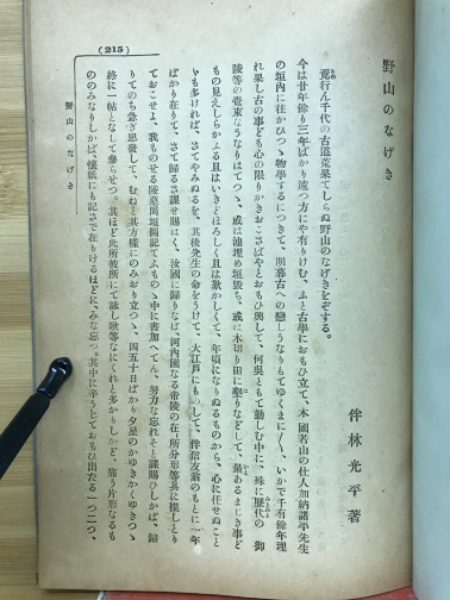 野山のなげき
伴林光平著
覓行ん千代の古道荒果てしらぬ野山のなげきをぞする。
今は廿年餘り三年ばかり遠つ方にや有りけむ、ふと古學におもひ立て、木國若山の仕人加納諸平先生
の垣内に往かひつゝ物學するにつきて、明暮古への戀しうなりもてゆくまに〳〵、いかで千有餘年埋
れ果し古の事ども心の限りかきおこさばやとおもひ興して、何呉ともて勤しむ中に、殊に歷代の御
陵等の壹東なうなりはてつゝ、或は池埋め垣毀ち、或に木切り田に墾りなどして、最あるまじき事ど
もの見えしらがふる且はいきどほろしく且は歎かしくて、年頃になりぬるものから、心に任せぬこと
ゝも多ければ、さてやみぬるを、其後先生の命をうけて、大江戸にものして、伴信友翁のもとに一年
ばかり在りて、さて歸るさ課せ賜はく、汝國に歸りなば、河内國なる帝陵の在所分形等具に摸しとり
ておこせよ、我ものせる陵墓圖垣圖記てふもの丶中に書加へてん、努力な忘れそと課賜ひしかば、歸
りてのち急ぎ思發して、むねと其方樣にのみおり立つゝ、四五十日ばかり夕星のかゆきかくゆきつゝ
終に一帖となして參らせつ。其ほど此所彼所にて詠し歌等なにくれと多かりしかど、薦う片形なるも
ののみなりしかば、懷紙にも記さで在りけるほどに、みな忘つ。其中に辛うじておもひ出たる一つ二つ、
野山のなげき
(215)